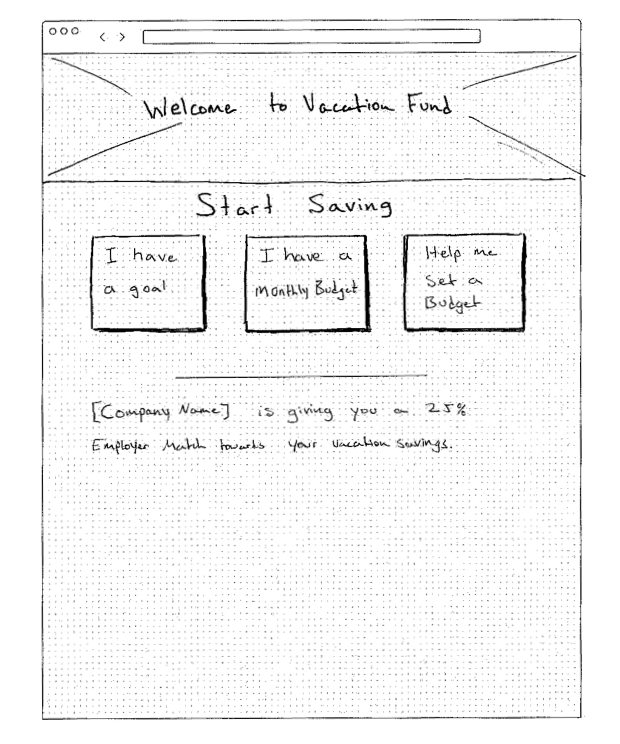 Welcome to Vacation Fund
Start Saving
I have
a goal
I have a
Monthly Budget
Help me
Set a
Budget
[Company Name] is giving you a 25%
Employer Match towards your vacation savings.